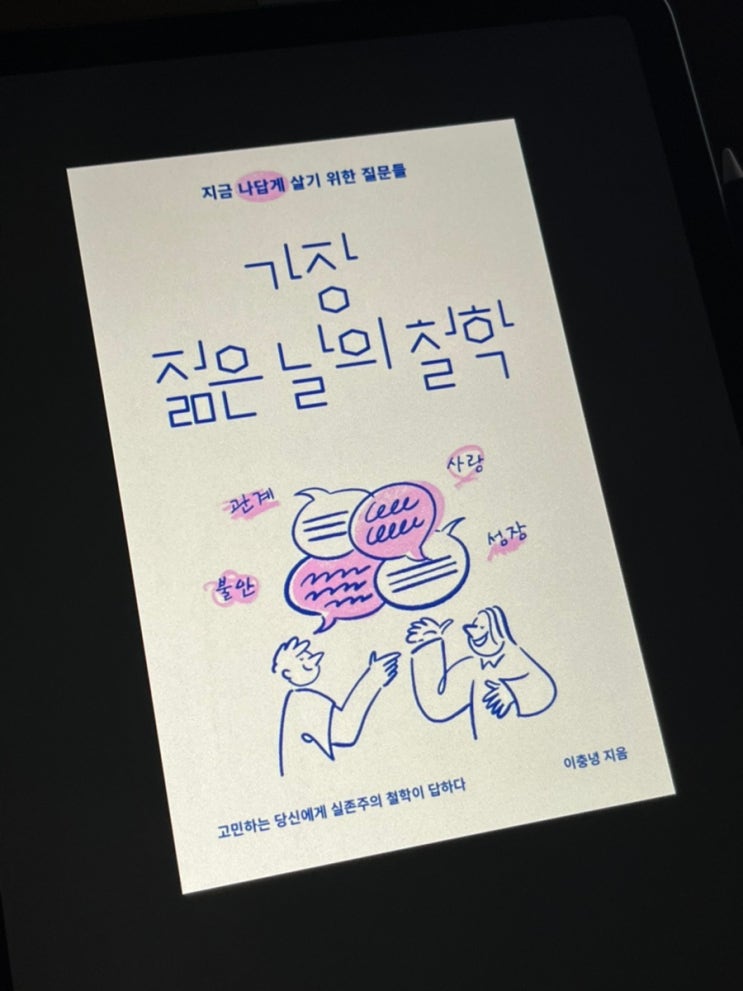 지금 나답게 살기 위한 질문들
가장
젊은 날의 철학
사랑
관계
성장
불안
이충녕 지음
고민하는 당신에게 실존주의 철학이 답하다